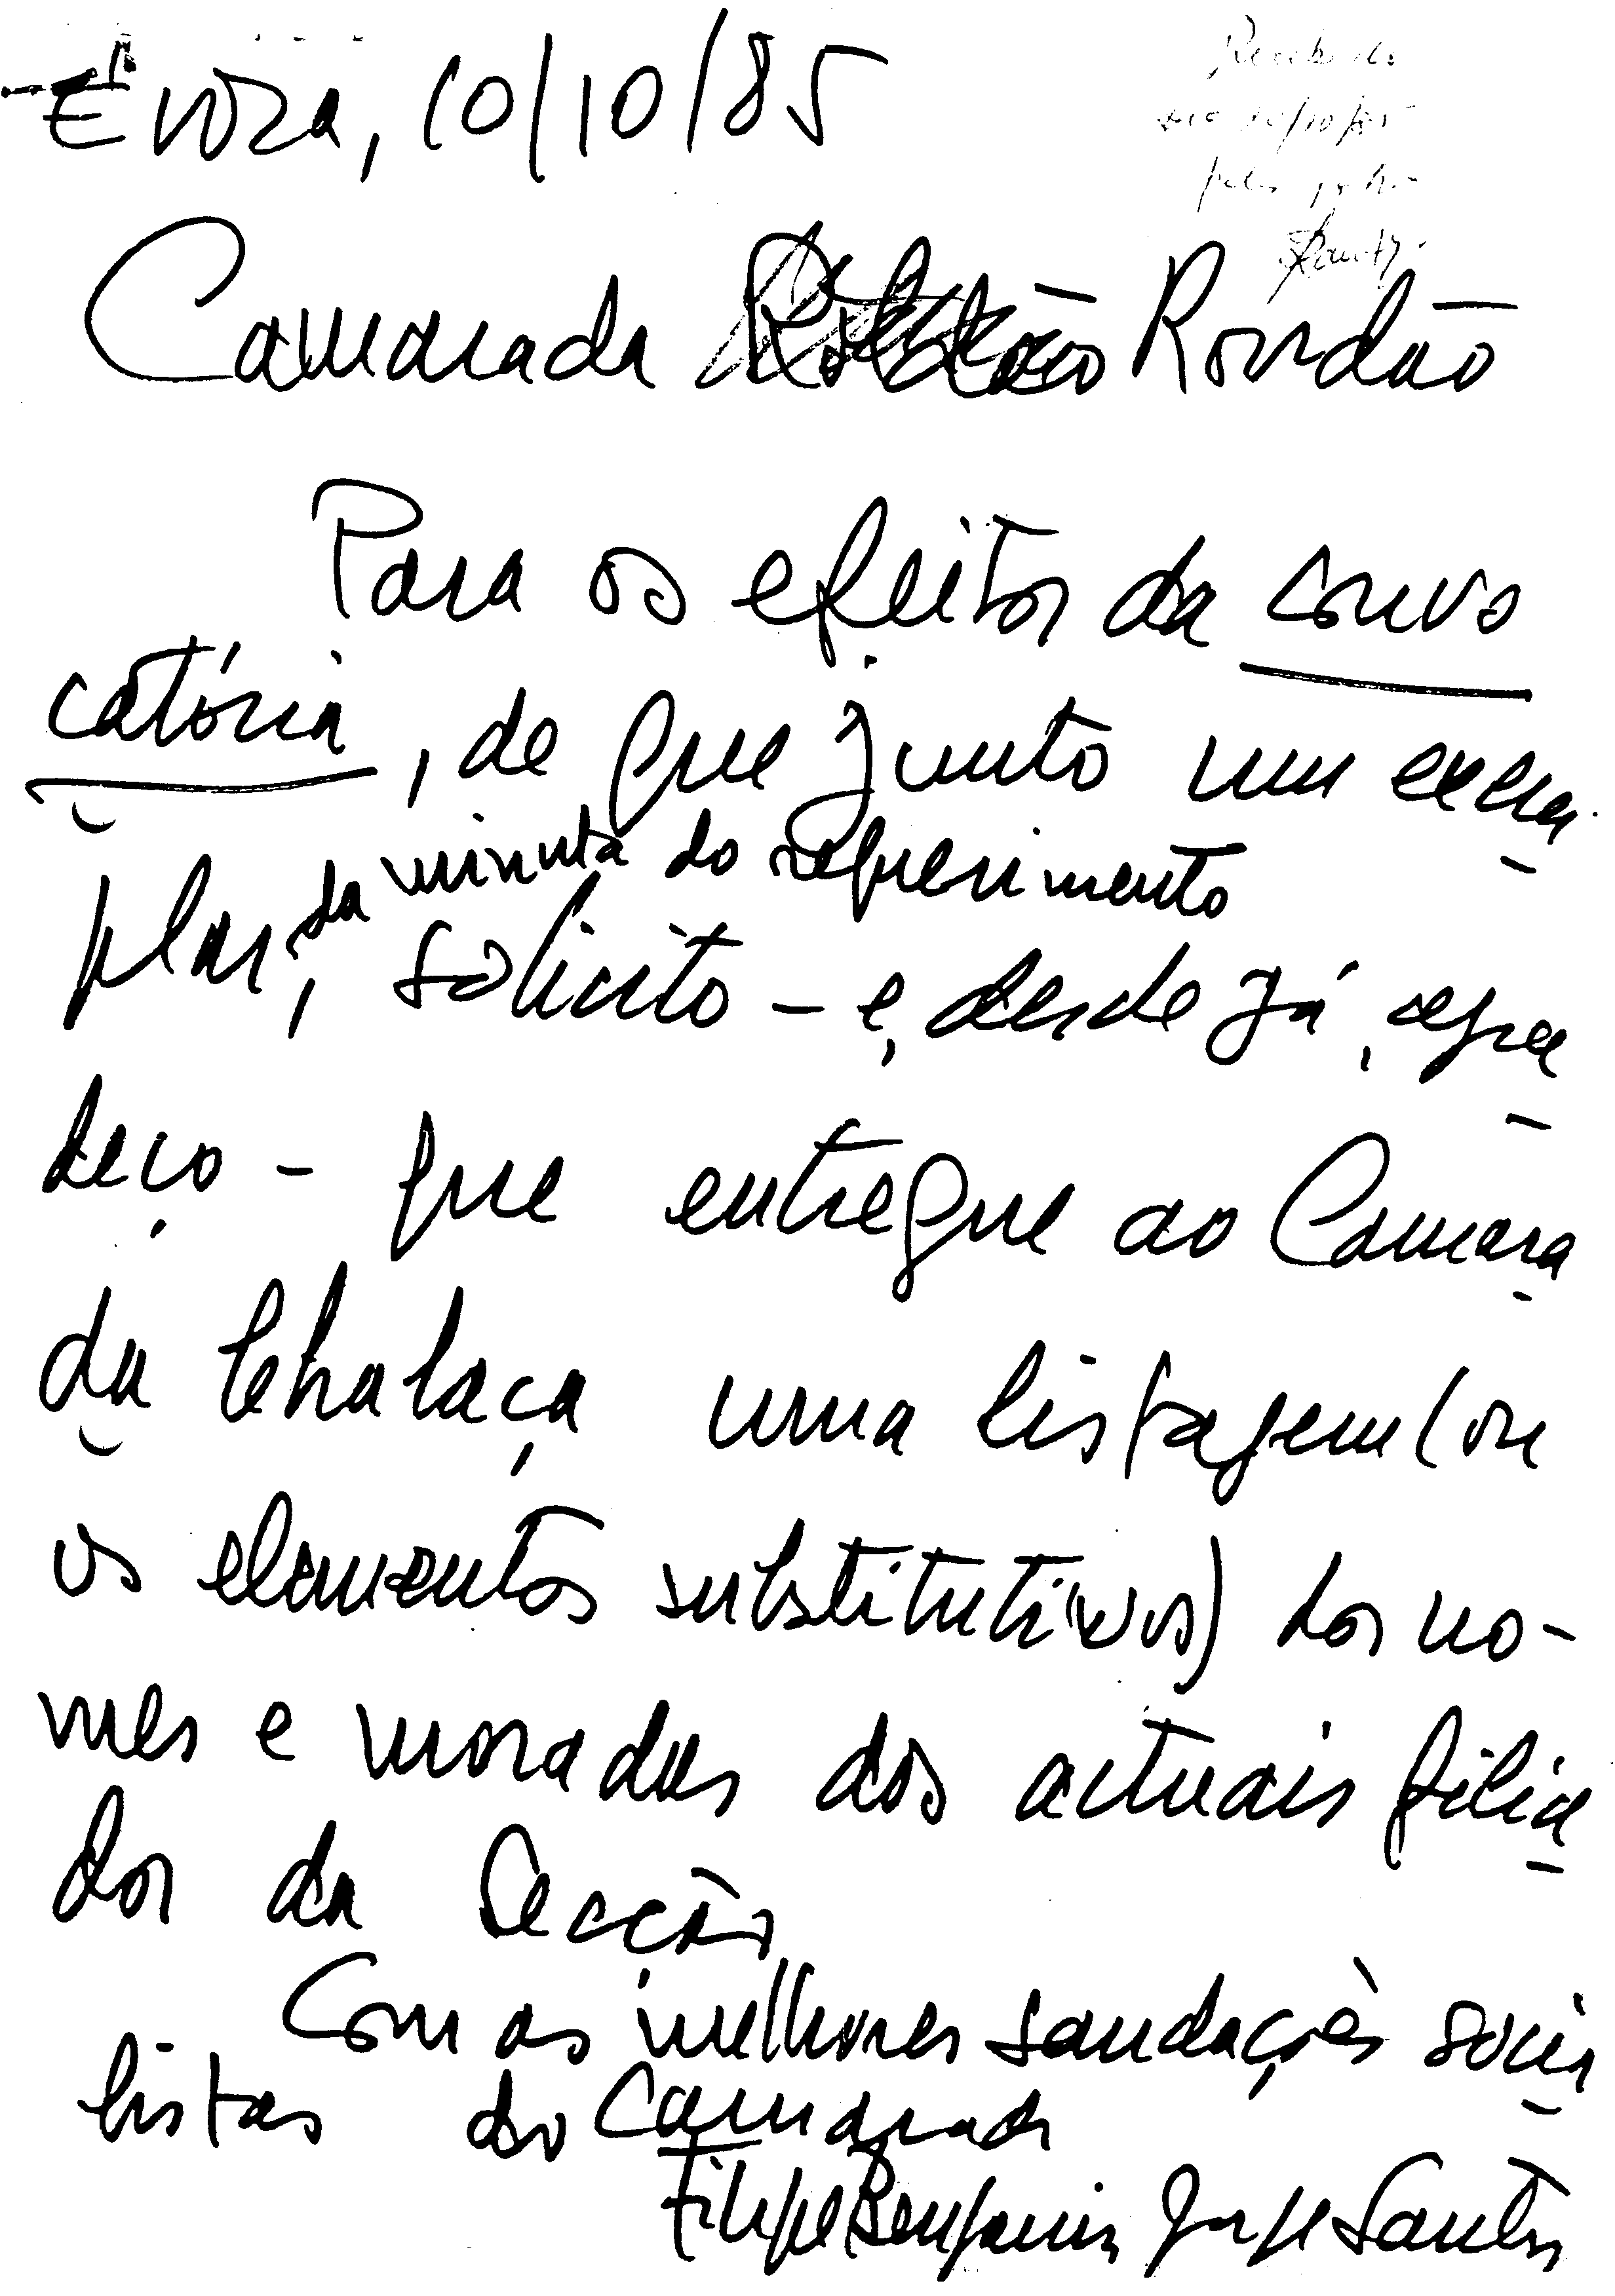 Évora, 10/10/85
Recebido
10/10/85
Camarada Rondão
Para os efeitos da convo
catória, de que junto um exem-
plar, da minuta do requerimento
solicito - e, desde já, agra
deço - que entregue ao Camara
da Chalaça uma listagem (ou
os elementos substitutivos) dos no-
mes e moradas dos actuais filia
dos da Secção
Com as melhores saudações socia
listas do Camarada
Filipe Benjamin Santos